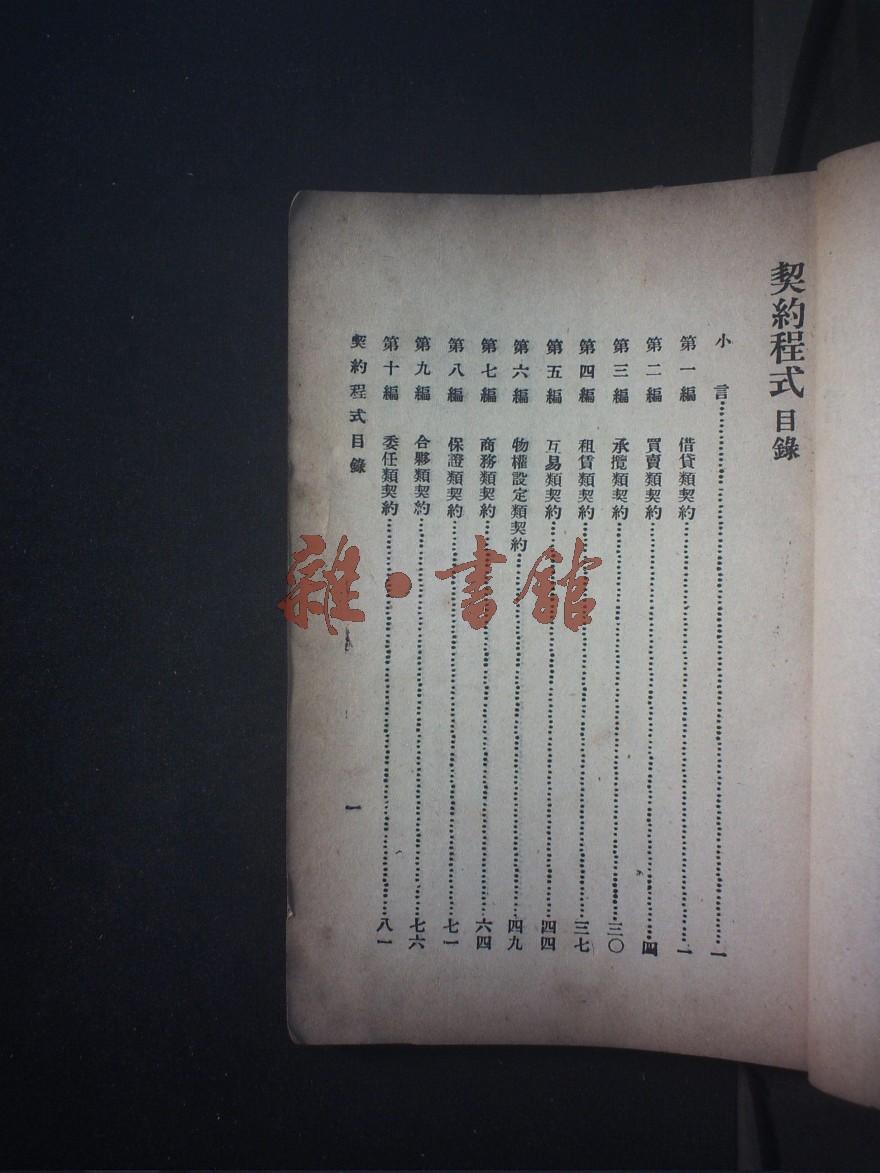 契約程式目錄
小言……一
第一編 借貸類契約……一
第二編 買賣類契約……四
第三編 承攬類契約……三〇
第四編 租賃類契約……三七
第五編 互易類契約……四四
第六編 物權設定類契約……四九
第七編 商務類契約……六四
第八編 保證類契約……七一
第九編 合夥類契約……七六
第十編 委任類契約……八一
契約程式目錄 一
雜·書館